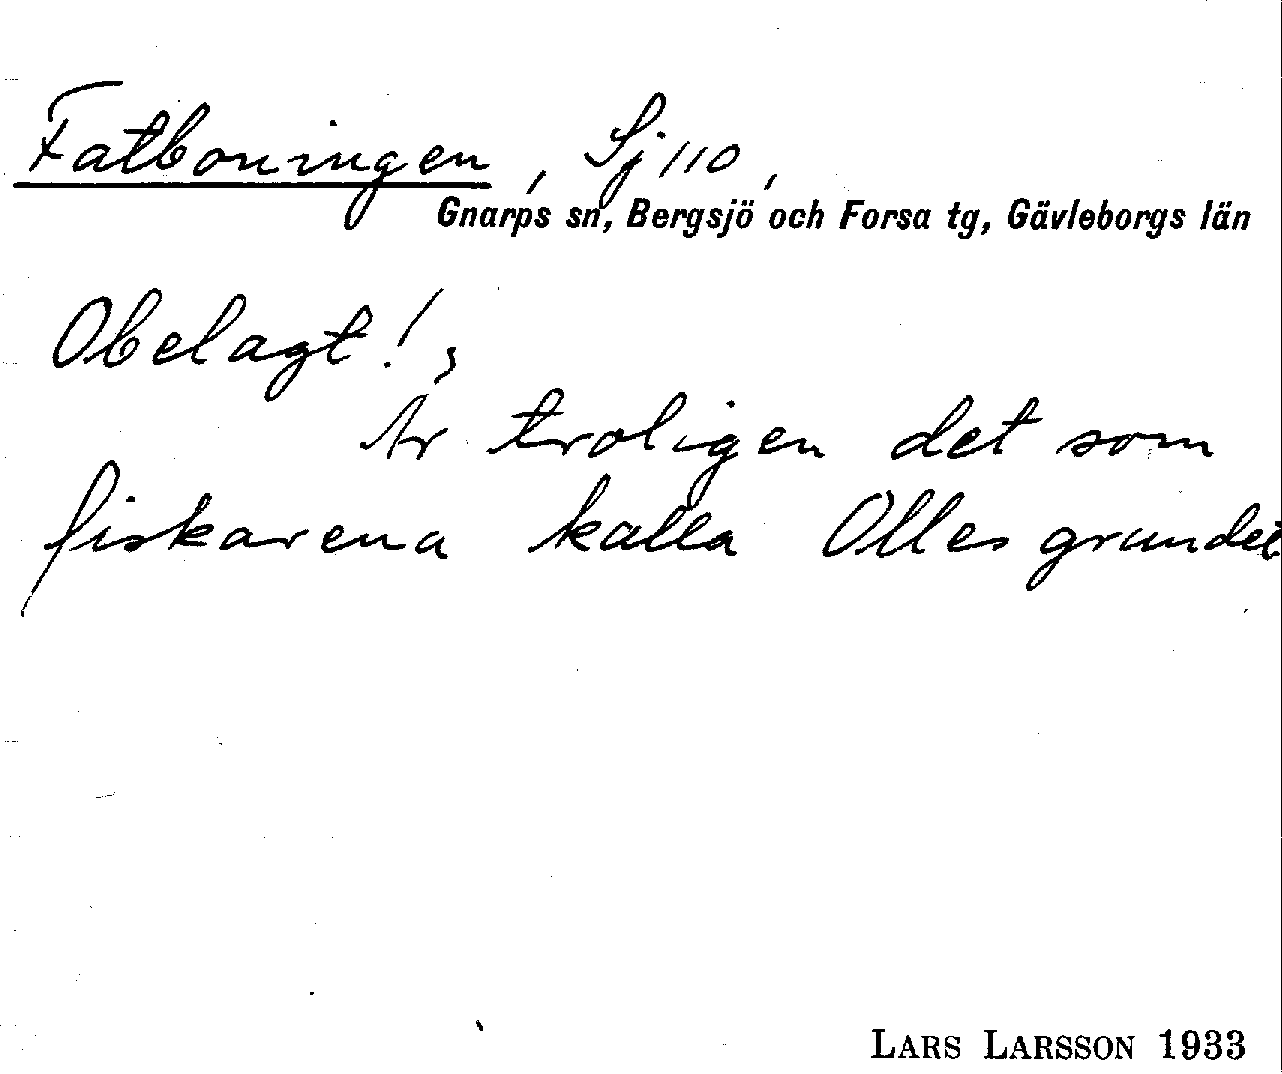 Fatboningen, Sj 110,
Gnarps sn, Bergsjö och Forsa tg, Gävleborgs län
Obelagt!
Är troligen det som
fiskarena kalla Olles grundet
LARS LARSSON 1933